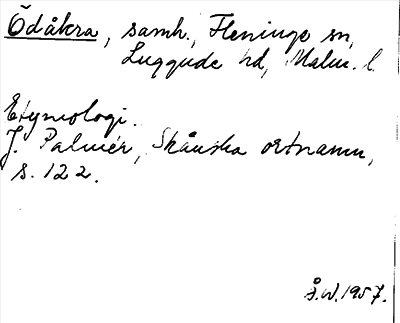 Ödåkra, samh., Fleninge sn,
Luggude hd, Malm. l.
Etymologi.
J. Palmér, Skånska ortnamn,
s. 122.
Å.W. 1957.